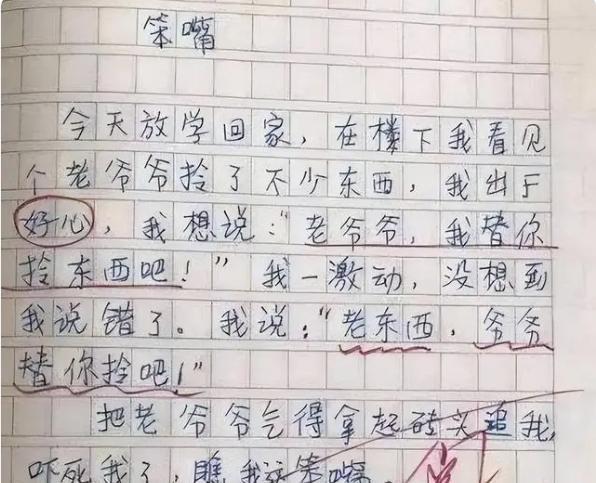 笨嘴
今天放学回家，在楼下我看见
个老爷爷拎了不少东西，我出于
好心，我想说："老爷爷，我替你
拎东西吧！"我一激动，没想到
我说错了。我说："老东西，爷爷
替你拎吧！"
把老爷爷气得拿起砖头追我，
吓死我了，瞧我这笨嘴。